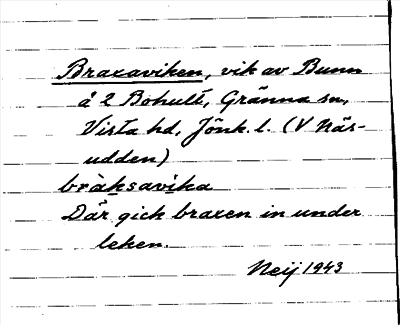 Braxaviken, vik av Bunn
å 2 Bohult, Gränna sn,
Vista hd, Jönk. l. (V Näs-
udden)
bràksavika
Där gick braxen in under
leken.
Neij 1943